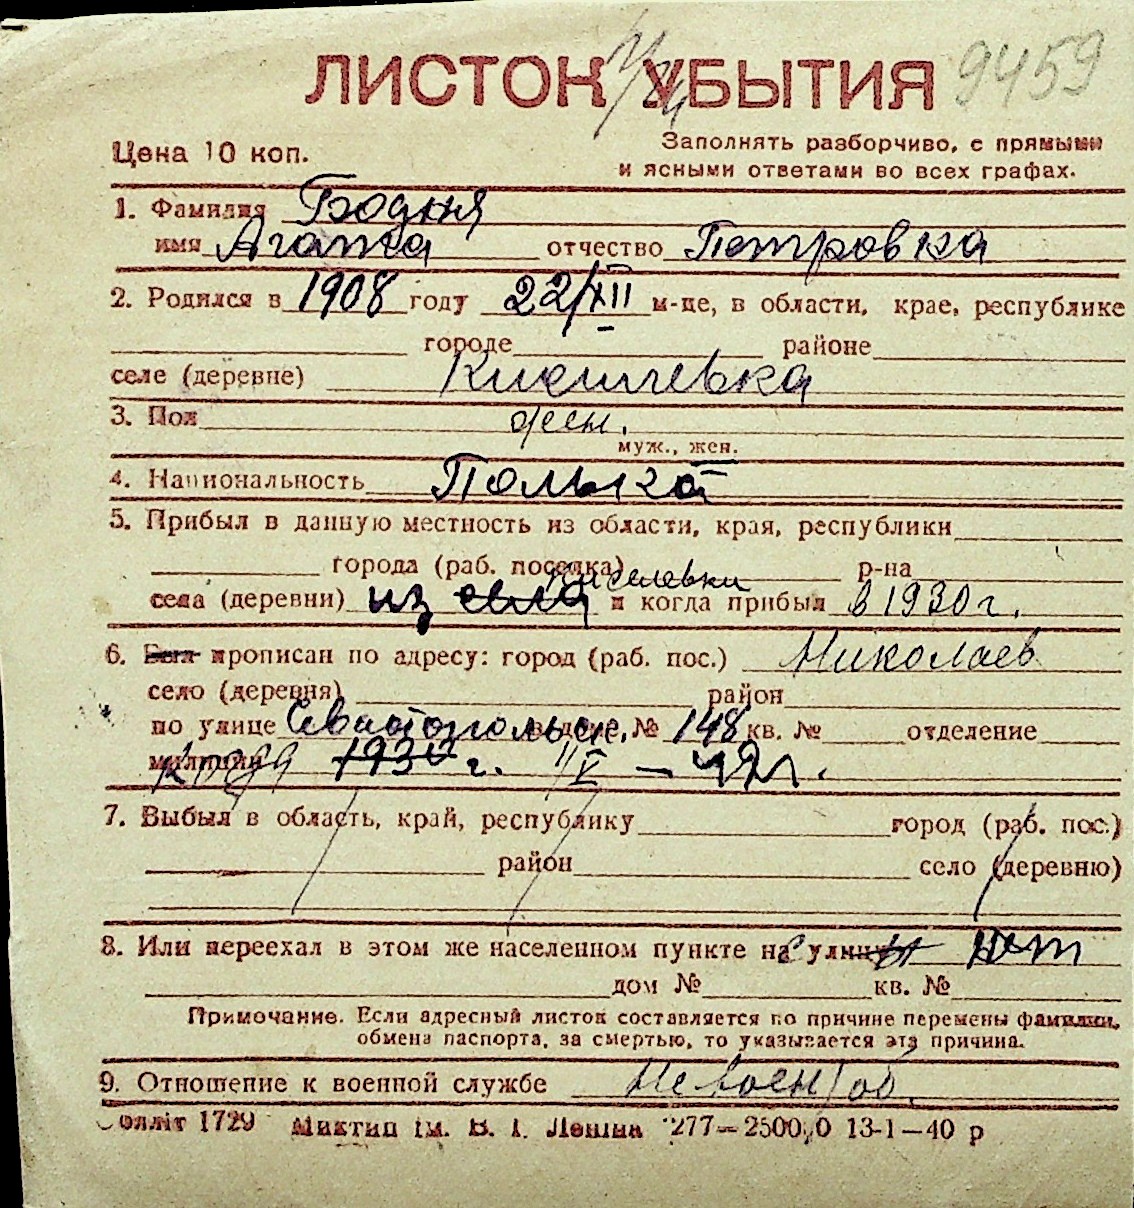 ЛИСТОК УБЫТИЯ 9459
Цена 10 коп.
Заполнять разборчиво, с прямыми
и ясными ответами во всех графах.
1. Фамилия Бодня
имя Агата отчество Петровна
2. Родился в 1908 году 22/XII м-це, в области, крае, республике
городе районе
селе (деревне) Киселевка
3. Пол жен.
муж., жен.
4. Национальность Полька
5. Прибыл в данную местность из области, края, республики
города (раб. поселка) р-на
Киселевки
села (деревни) из села и когда прибыл в 1930 г.
6. Был прописан по адресу: город (раб. пос.) Николаев
село (деревня) район
по улице Севастопольск. № 148 кв. № отделение
милиции 1930 г. 11/V – 42 г.
7. Выбыл в область, край, республику город (раб. пос.)
район село (деревню)
8. Или переехал в этом же населенном пункте на улицу нет
дом № кв. №
Примечание. Если адресный листок составляется по причине перемены фамилии,
обмена паспорта, за смертью, то указывается эта причина.
9. Отношение к военной службе Невоеноб.
Облліт 1729 Миктип ім. В. І. Леніна 277–2500,0 13-1–40 р